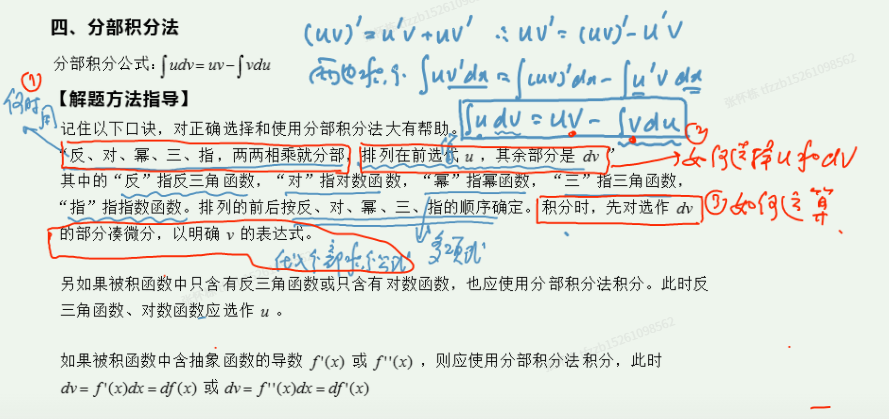 四、分部积分法
(uv)'=u'v+uv' ∴ uv'=(uv)'-u'v
分部积分公式:∫udv=uv-∫vdu
两边求 ∫uv'dx=∫(uv)'dx-∫u'vdx
①
何时用
【解题方法指导】
∫udv=uv-∫vdu
记住以下口诀，对正确选择和使用分部积分法大有帮助。
②
“反、对、幂、三、指，两两相乘就分部，排列在前选代 u ，其余部分是 dv ”
如何选择u和dv
其中的“反”指反三角函数，“对”指对数函数，“幂”指幂函数，“三”指三角函数，
“指”指指数函数。排列的前后按反、对、幂、三、指的顺序确定。积分时，先对选作 dv
③如何运算
的部分凑微分，以明确 v 的表达式。
多项式
另如果被积函数中只含有反三角函数或只含有对数函数，也应使用分部积分法积分。此时反
三角函数、对数函数应选作 u 。
如果被积函数中含抽象函数的导数 f'(x) 或 f''(x) ，则应使用分部积分法积分，此时
dv= f'(x)dx= df(x) 或 dv= f''(x)dx= df'(x)